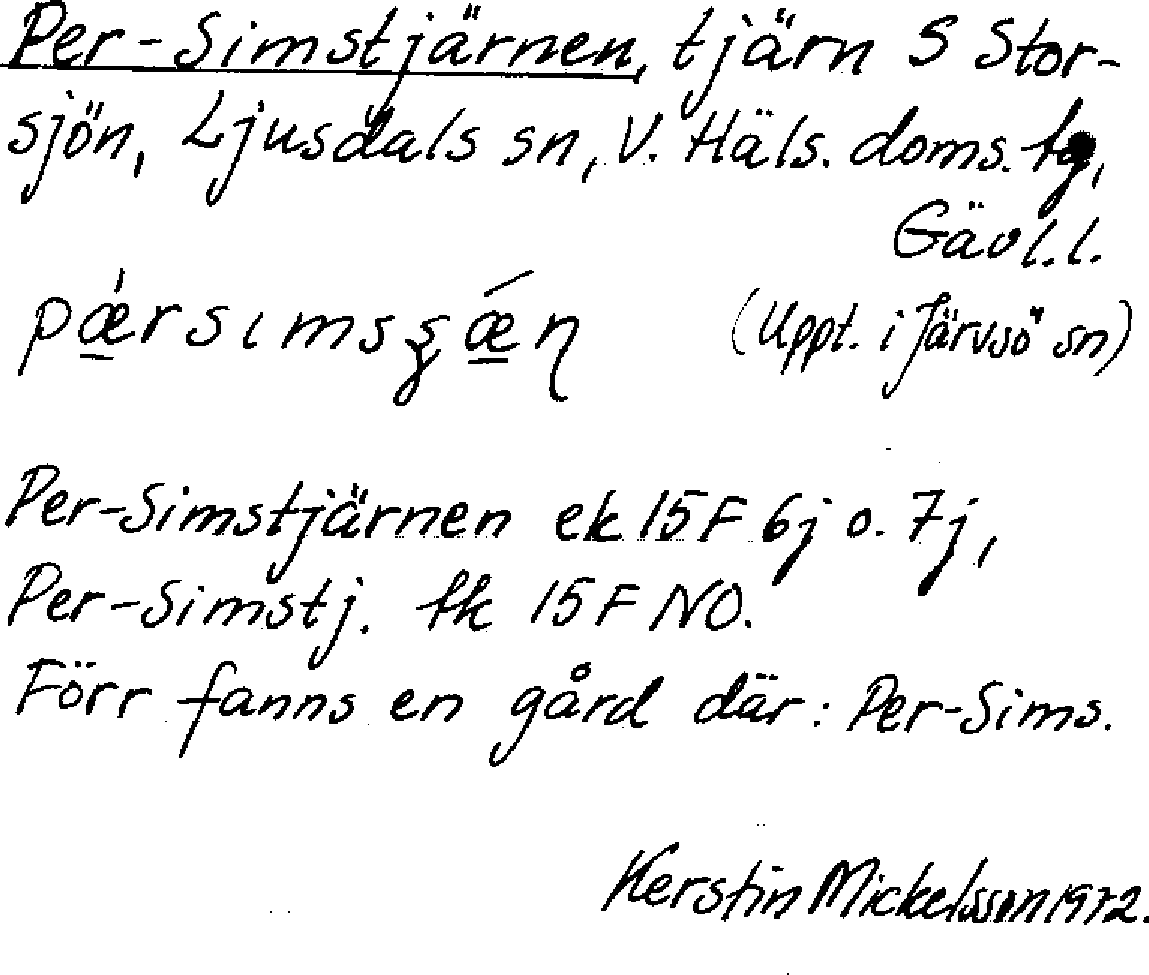 Per-Simstjärnen, tjärn S Stor-
sjön, Ljusdals sn, V. Häls. doms. tg,
Gävl. l.
pǽrsımsʂǽn (Uppt. i Järvsö sn)
Per-Simstjärnen ek 15F 6j o. 7j,
Per-Simstj. tk 15F NO.
Förr fanns en gård där: Per-Sims.
Kerstin Mickelsson 1972.